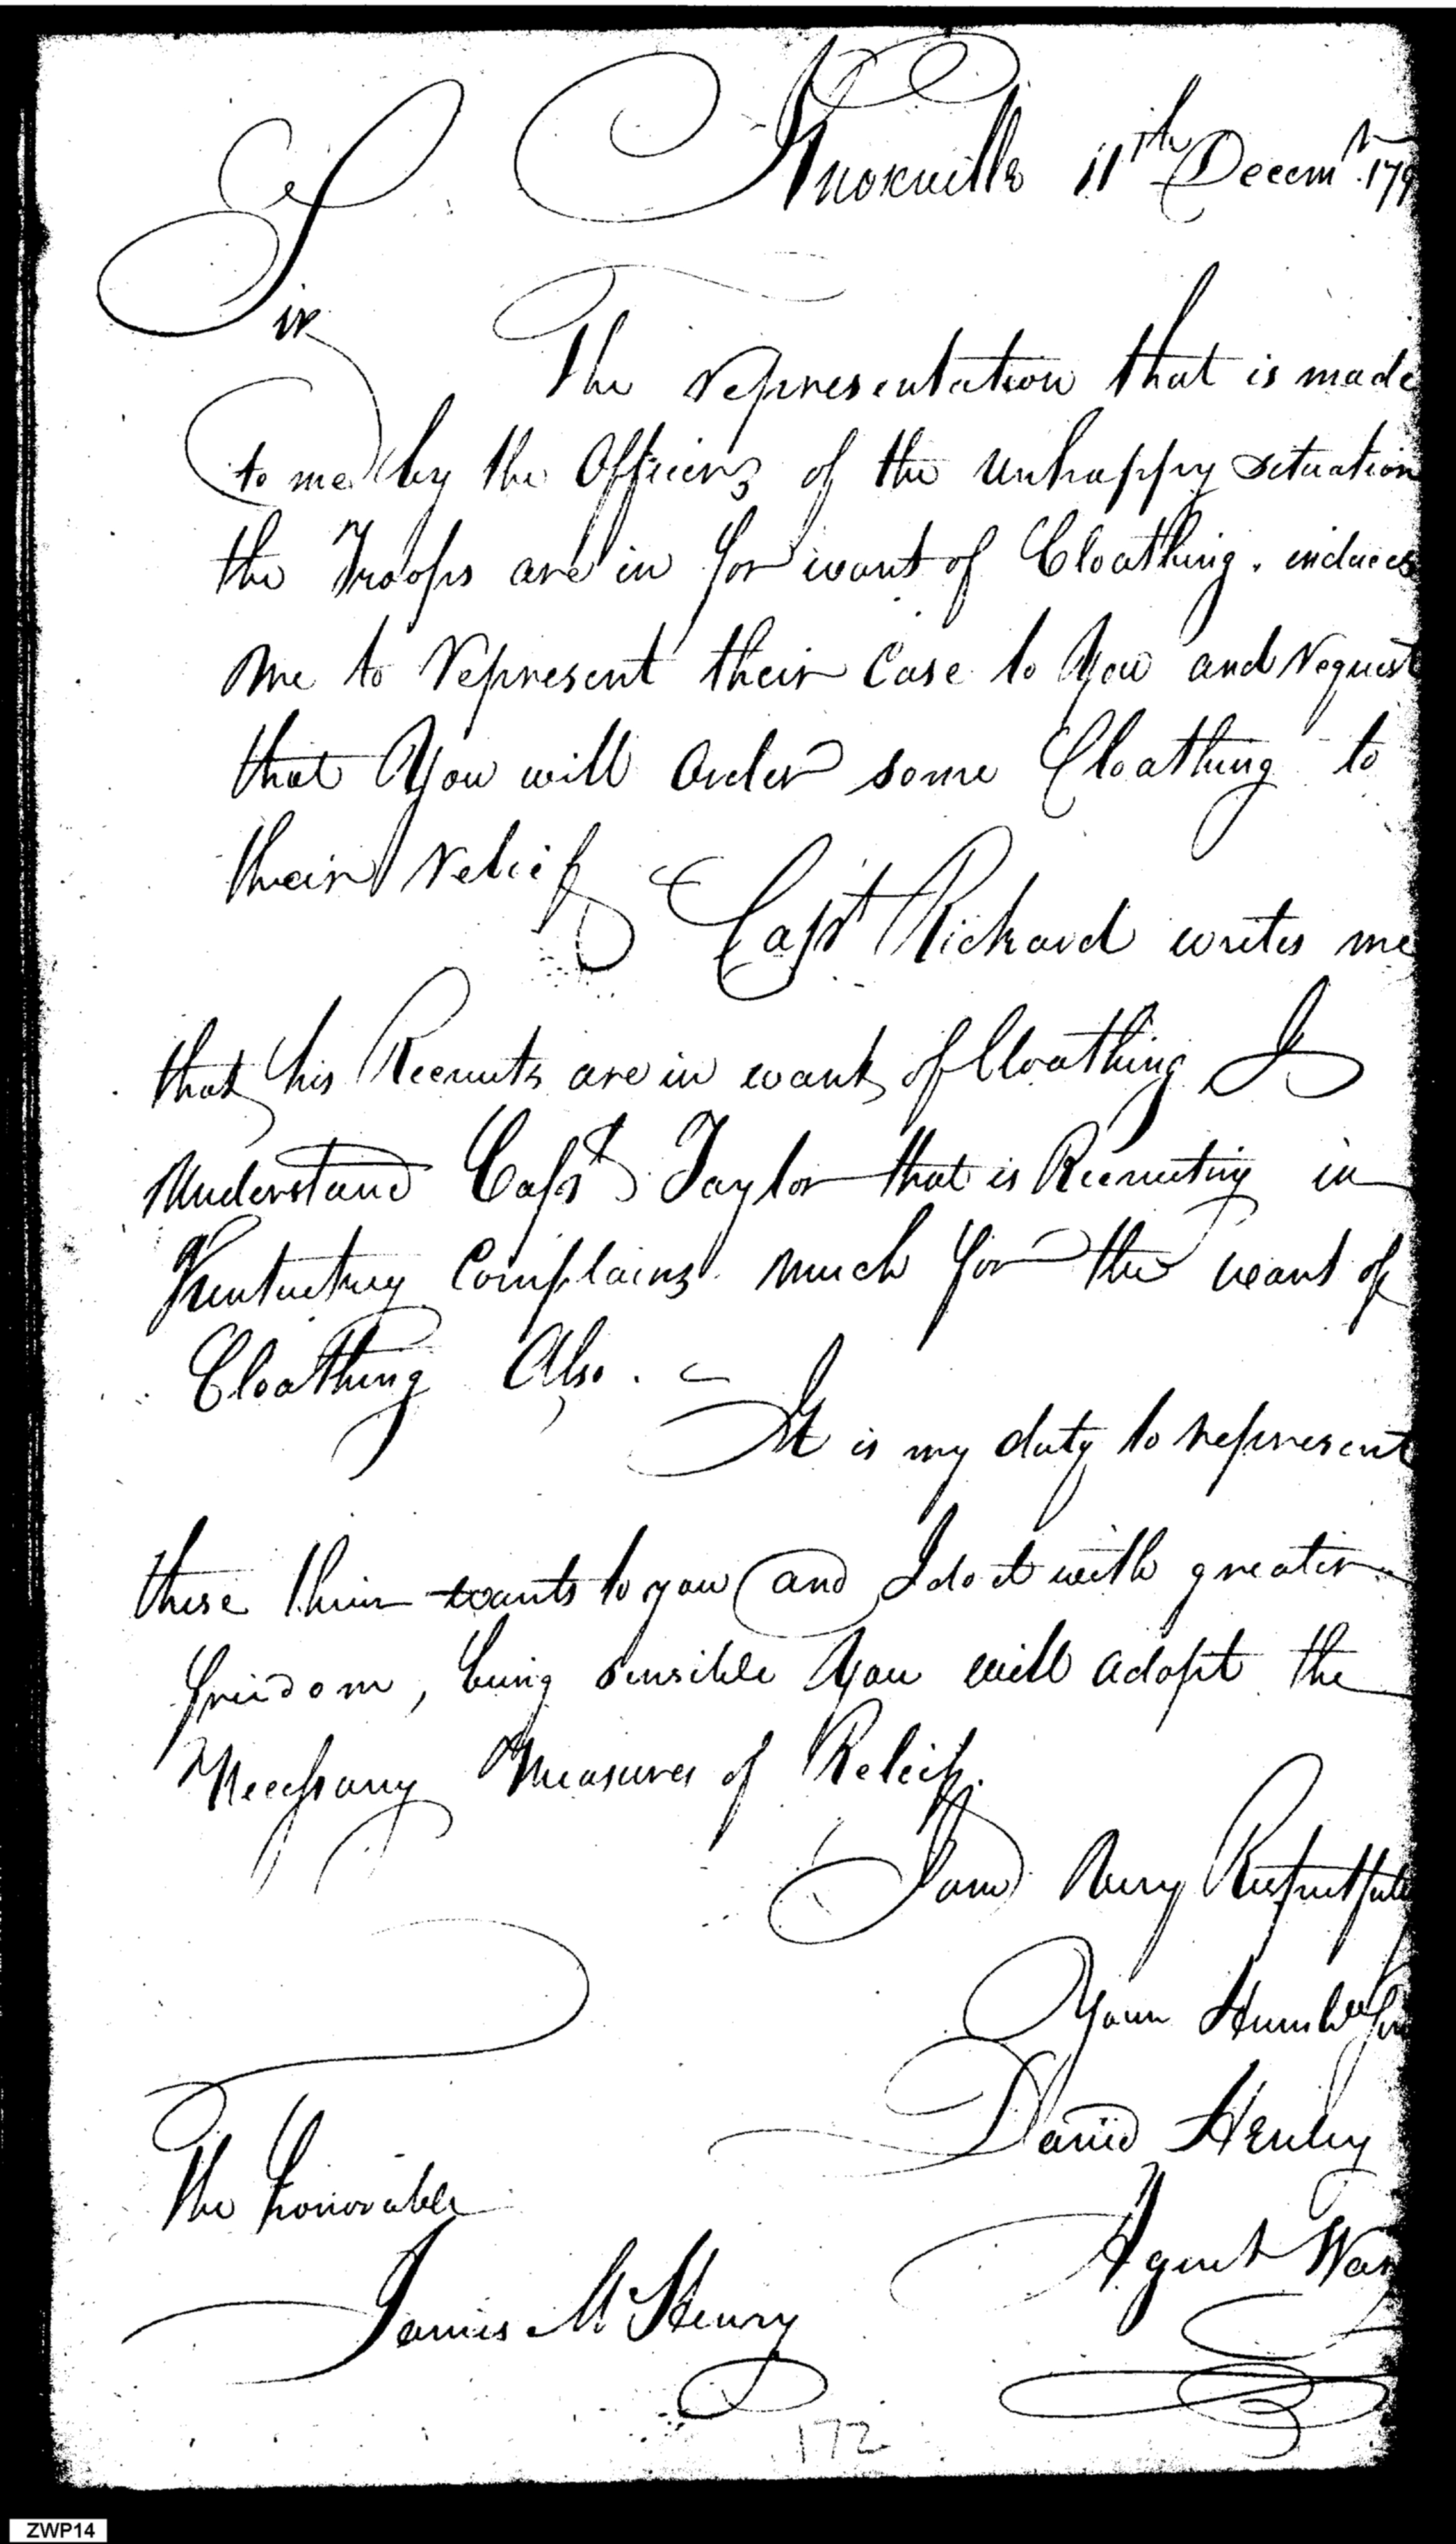 Knoxville 11th Decemr. 179
Sir
The representation that is made
to me by the Officers of the Unhappy situation
the Troops are in for want of Cloathing. induces
me to represent their Case to You and request
that You will order some Cloathing to
their relief
Capt Richard writes me
that his Recruits are in want of Cloathing I
Understand Capt Taylor that is Recruiting in
Kentuckey Complains much for the want of
Cloathing Also.
It is my duty to represent
these their wants to you and I do it with greater
freedom, being sensible You will adopt the
Necessary Measures of Releif.
I am Very Respectfully
Your Humble Ser
David Henley
Agent War
The Honorable
James McHenry
172
ZWP14